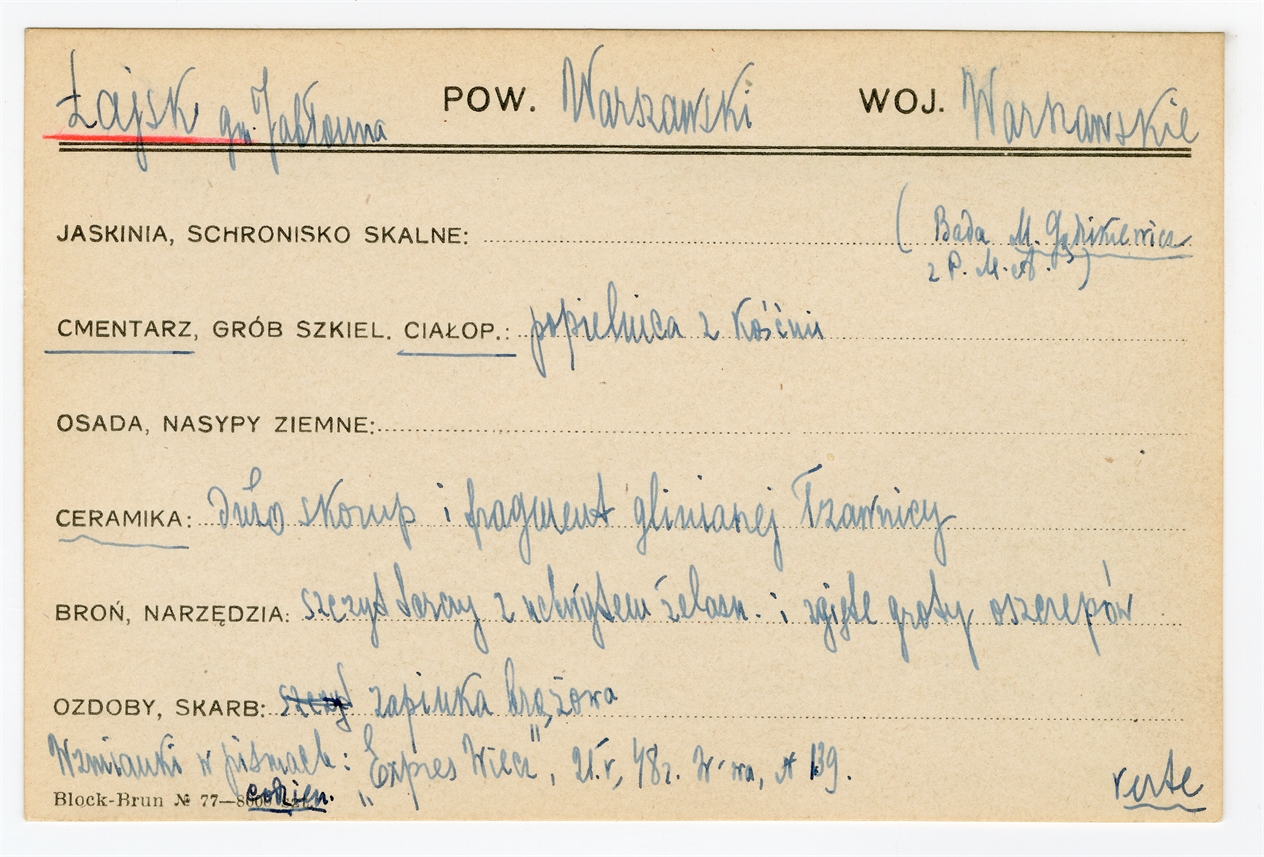 Łajsk gm. Jabłonna POW. Warszawski WOJ. Warszawskie
JASKINIA, SCHRONISKO SKALNE: (Bada M.
z P. M. A.)
CMENTARZ, GRÓB SZKIEL. CIAŁOP.: popielnica z kośćmi
OSADA, NASYPY ZIEMNE:
CERAMIKA: dużo skorup i fragment glinianej łzawnicy
BROŃ, NARZĘDZIA: szczyt tarczy z uchwytem żelazn. i zgięte groty oszczepów
OZDOBY, SKARB: zapinka brązowa
Wzmianki w pismach: „Expres Wiecz", 21.V, 48 r. W-wa, N 139.
codzien.
Block-Brun № 77—8000
verte